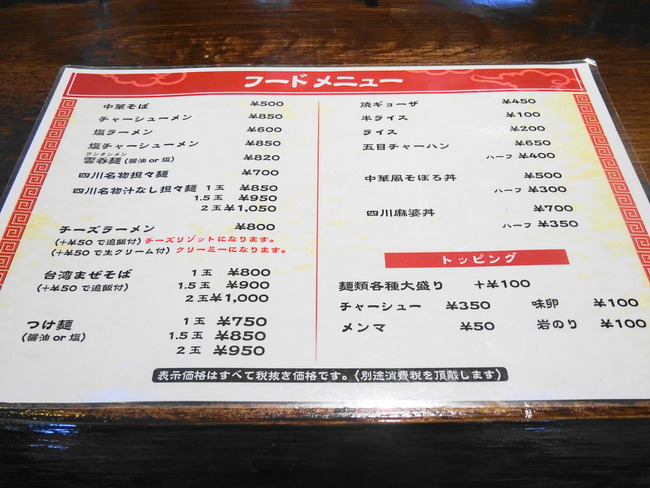 フードメニュー
中華そば ¥500
チャーシューメン ¥850
塩ラーメン ¥600
塩チャーシューメン ¥850
ワンタンメン
雲呑麺(醤油or塩) ¥820
四川名物担々麺 ¥700
四川名物汁なし担々麺 1玉 ¥850
1.5玉 ¥950
2玉 ¥1,050
チーズラーメン ¥800
(+¥50で追飯付)チーズリゾットになります。
(+¥50で生クリーム付)クリーミーになります。
台湾まぜそば 1玉 ¥800
(+¥50で追飯付) 1.5玉 ¥900
2玉 ¥1,000
つけ麺 1玉 ¥750
(醤油or塩) 1.5玉 ¥850
2玉 ¥950
焼ギョーザ ¥450
半ライス ¥100
ライス ¥200
五目チャーハン ¥650
ハーフ ¥400
中華風そぼろ丼 ¥500
ハーフ ¥300
四川麻婆丼 ¥700
ハーフ ¥350
トッピング
麺類各種大盛り +¥100
チャーシュー ¥350 味卵 ¥100
メンマ ¥50 岩のり ¥100
表示価格はすべて税抜き価格です。(別途消費税を頂戴します)